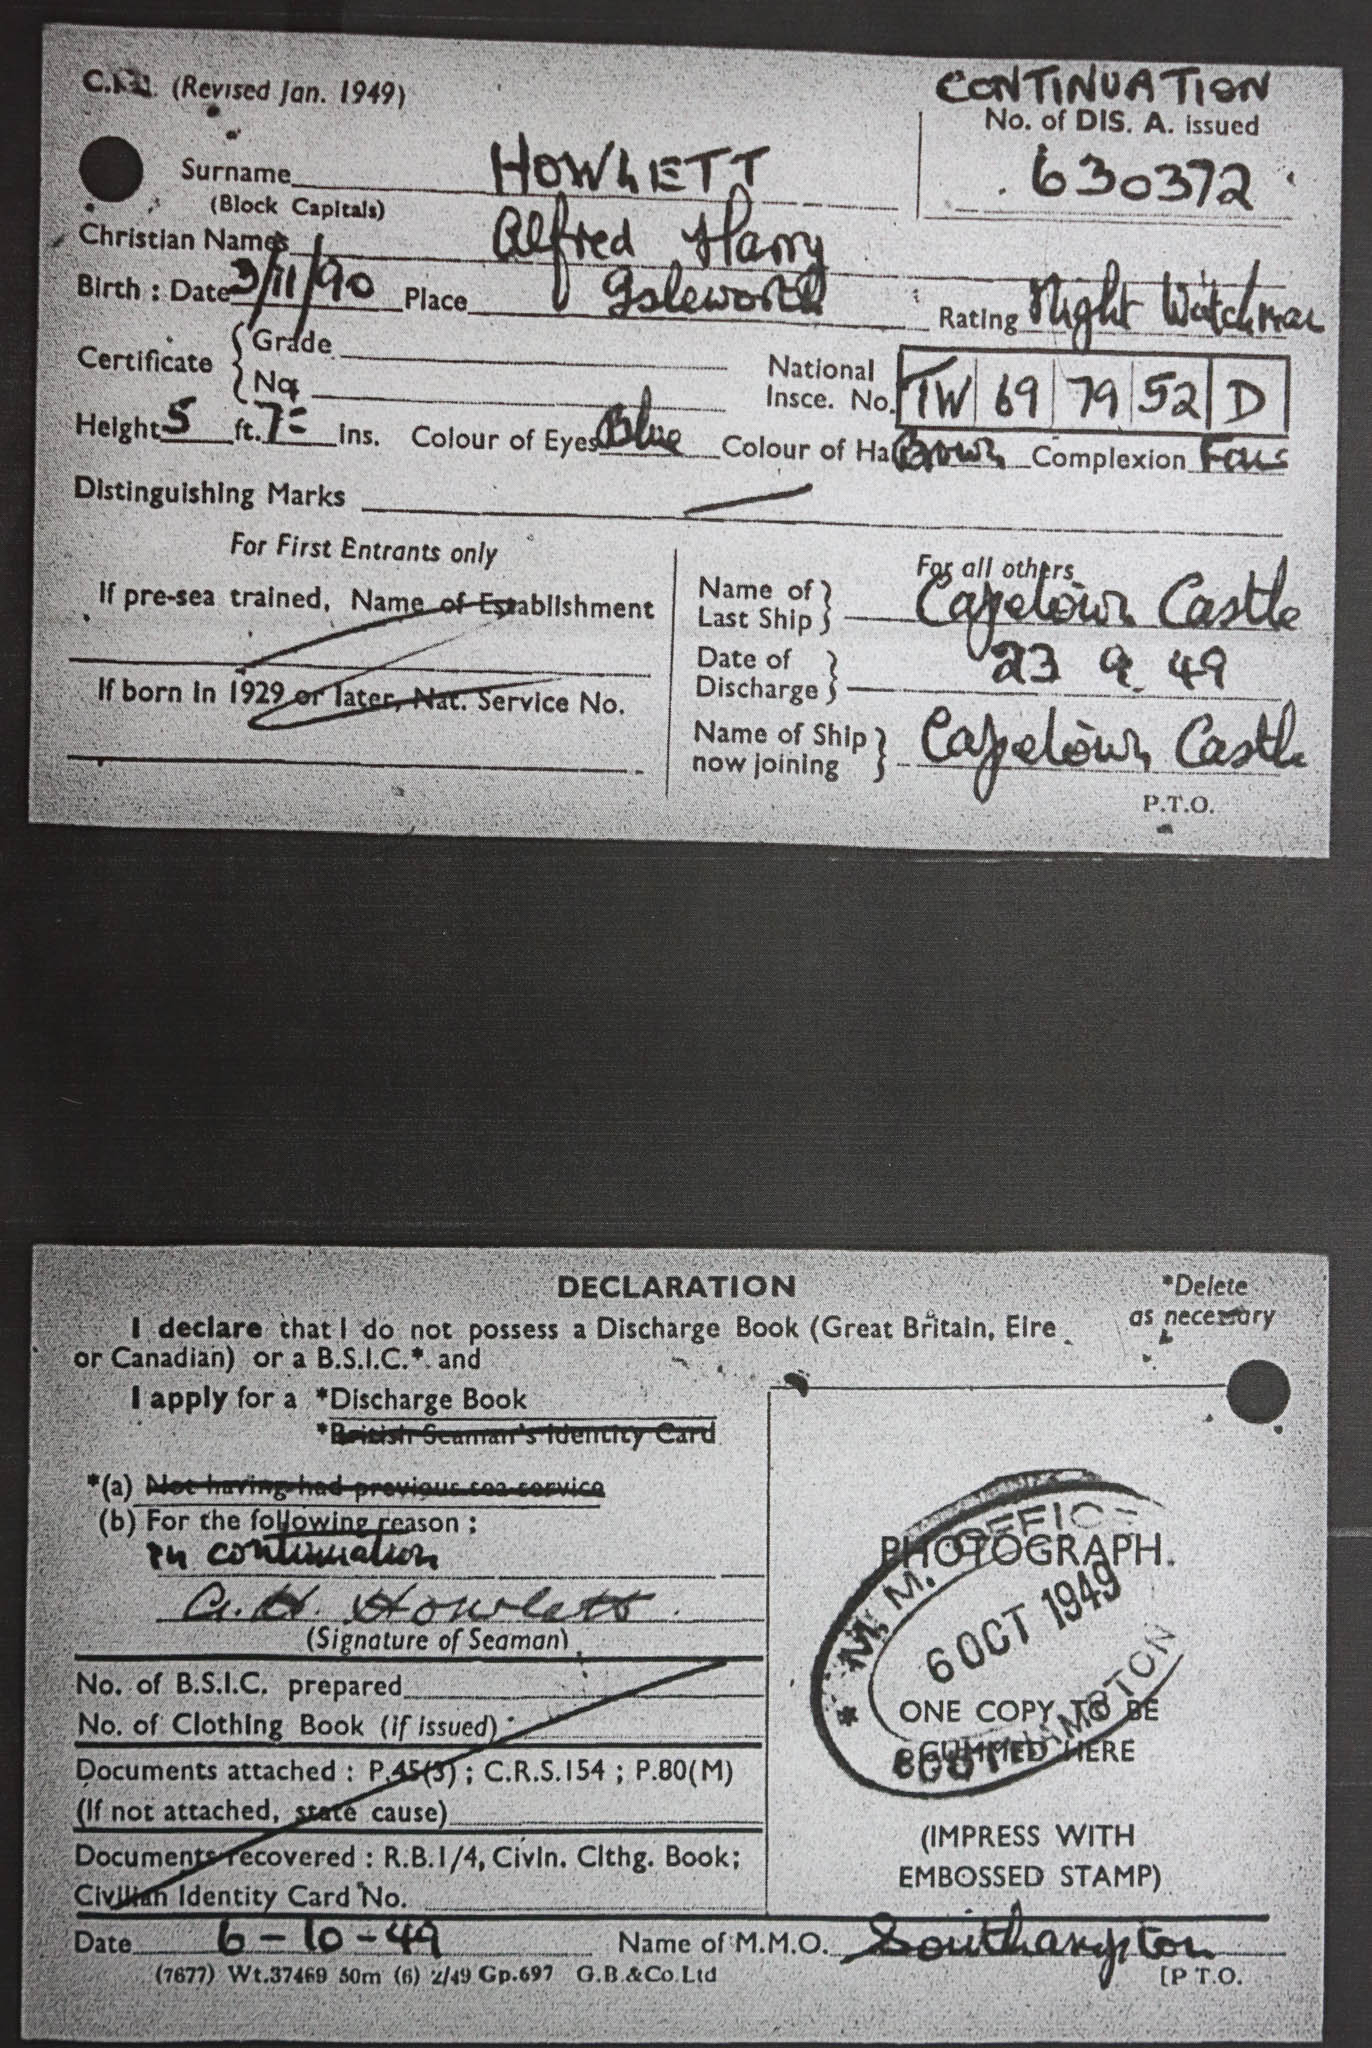 (Revised Jan. 1949)
CONTINUATION
No. of DIS. A. issued
630372
Surname HOWLETT
(Block Capitals)
Christian Names Alfred Harry
Birth : Date 3/11/90 Place Isleworth Rating Night Watchman
Certificate { Grade
No.
National Insce. No. TW 69 79 52 D
Height 5 ft. 7 Ins. Colour of Eyes Blue Colour of Ha Brown Complexion Fair
Distinguishing Marks —
For First Entrants only
If pre-sea trained, Name of Establishment
If born in 1929 or later, Nat. Service No.
For all others
Name of Last Ship } Capetown Castle
Date of Discharge } 23 9 49
Name of Ship now joining } Capetown Castle
P.T.O.
DECLARATION
*Delete as necessary
I declare that I do not possess a Discharge Book (Great Britain, Eire
or Canadian) or a B.S.I.C.* and
I apply for a *Discharge Book
*British Seaman's Identity Card
*(a) Not having had previous sea service
(b) For the following reason :
in continuation
A. H. Howlett
(Signature of Seaman)
No. of B.S.I.C. prepared
No. of Clothing Book (if issued)
Documents attached : P.45(3) ; C.R.S.154 ; P.80(M)
(If not attached, state cause)
Documents recovered : R.B.1/4, Civln. Clthg. Book;
Civilian Identity Card No.
PHOTOGRAPH.
ONE COPY TO BE
GUMMED HERE
(IMPRESS WITH
EMBOSSED STAMP)
* M. M. OFFICE
6 OCT 1949
SOUTHAMPTON
Date 6-10-49 Name of M.M.O. Southampton
(7677) Wt.37469 50m (6) 2/49 Gp.697 G.B.&Co.Ltd [P T.O.